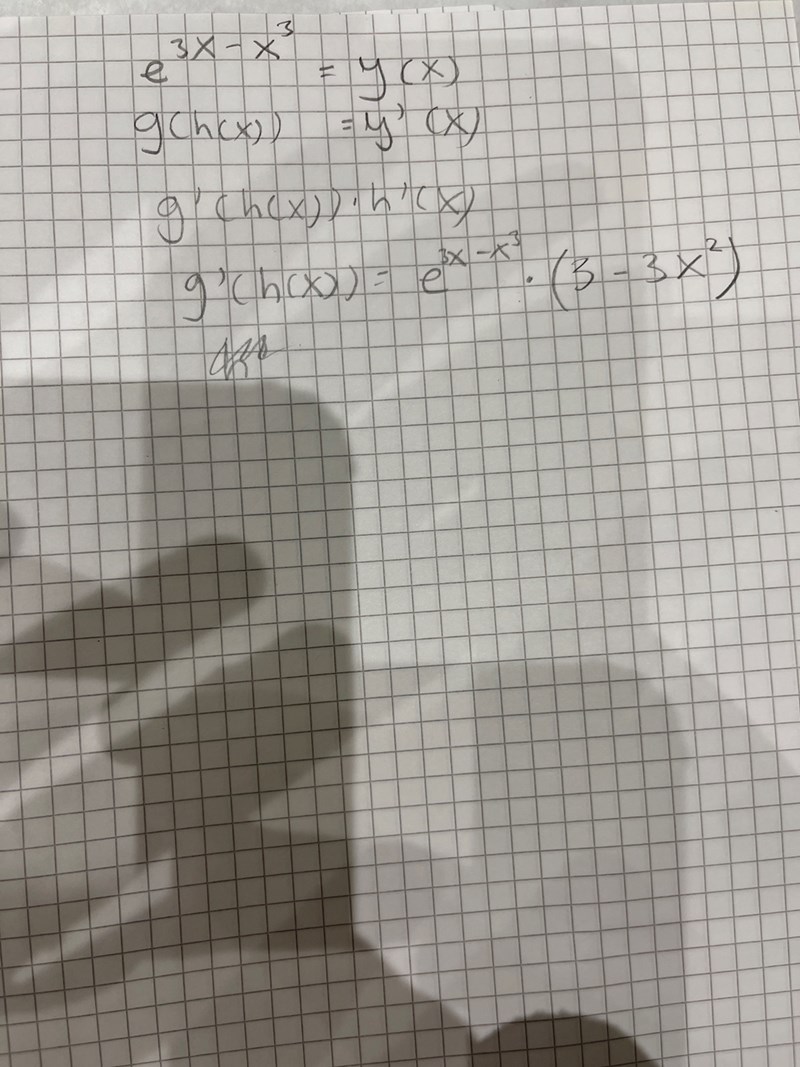 e^{3x-x^3} = y(x)
g(h(x)) = y'(x)
g'(h(x))·h'(x)
g'(h(x)) = e^{3x-x^3}·(3-3x^2)